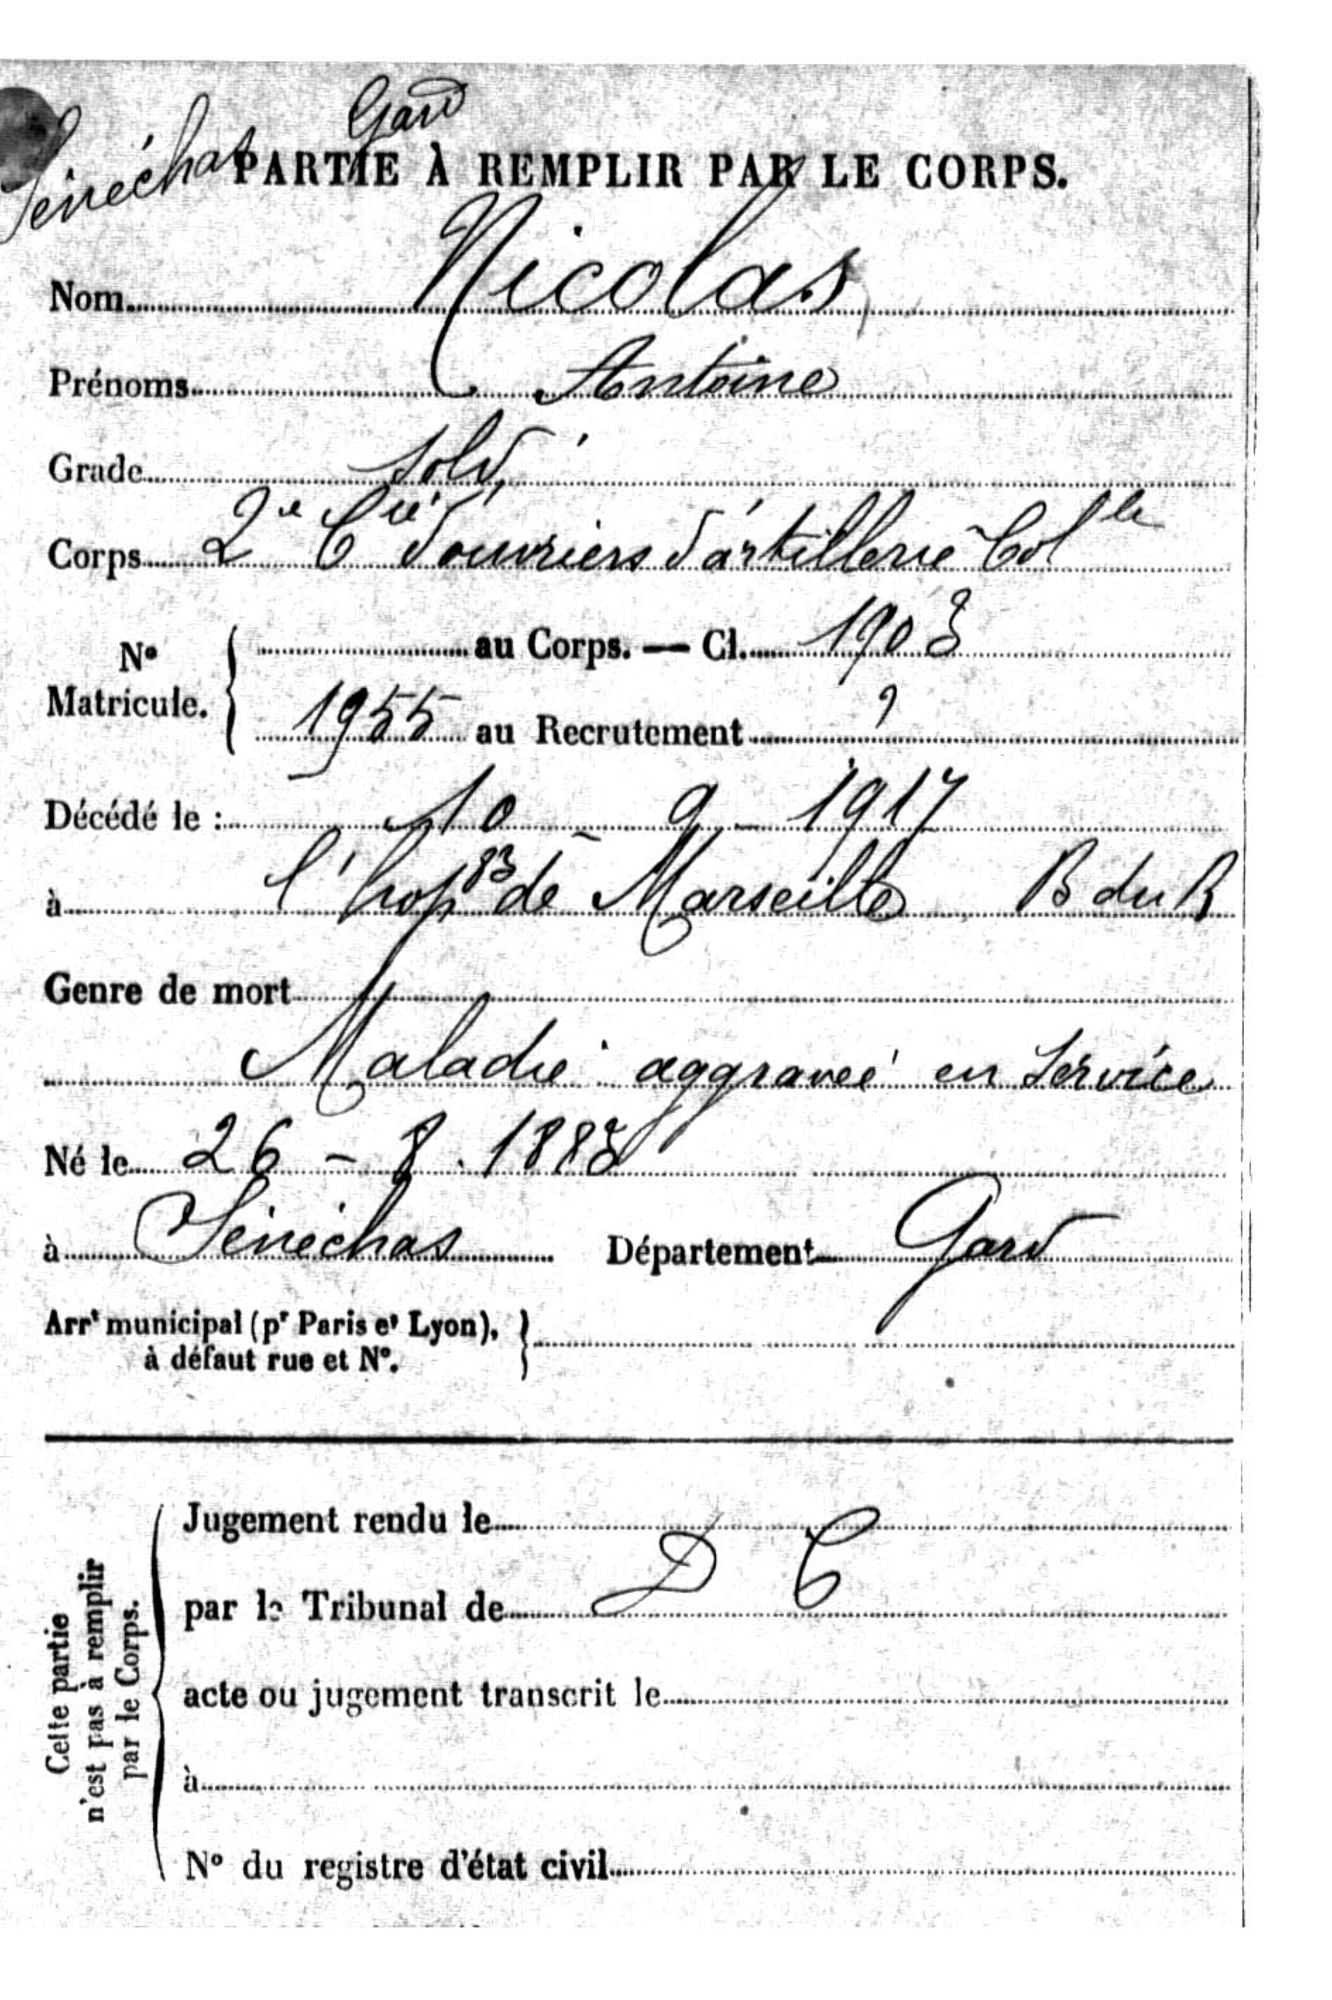 Sénéchas Gard
PARTIE À REMPLIR PAR LE CORPS.
Nom Nicolas
Prénoms Antoine
Grade sold
Corps 2e Cie d'ouvriers d'artillerie Colle
No Matricule. { au Corps. — Cl. 1903
1955 au Recrutement ?
Décédé le : 10 - 9 - 1917
à l'hop 83 de Marseille B du R
Genre de mort
Maladie aggravée en service
Né le 26 - 8 . 1883
à Sénéchas Département Gard
Arrt municipal (pr Paris et Lyon), }
à défaut rue et No.
Cette partie
n'est pas à remplir
par le Corps.
Jugement rendu le
par le Tribunal de D C
acte ou jugement transcrit le
à
No du registre d'état civil